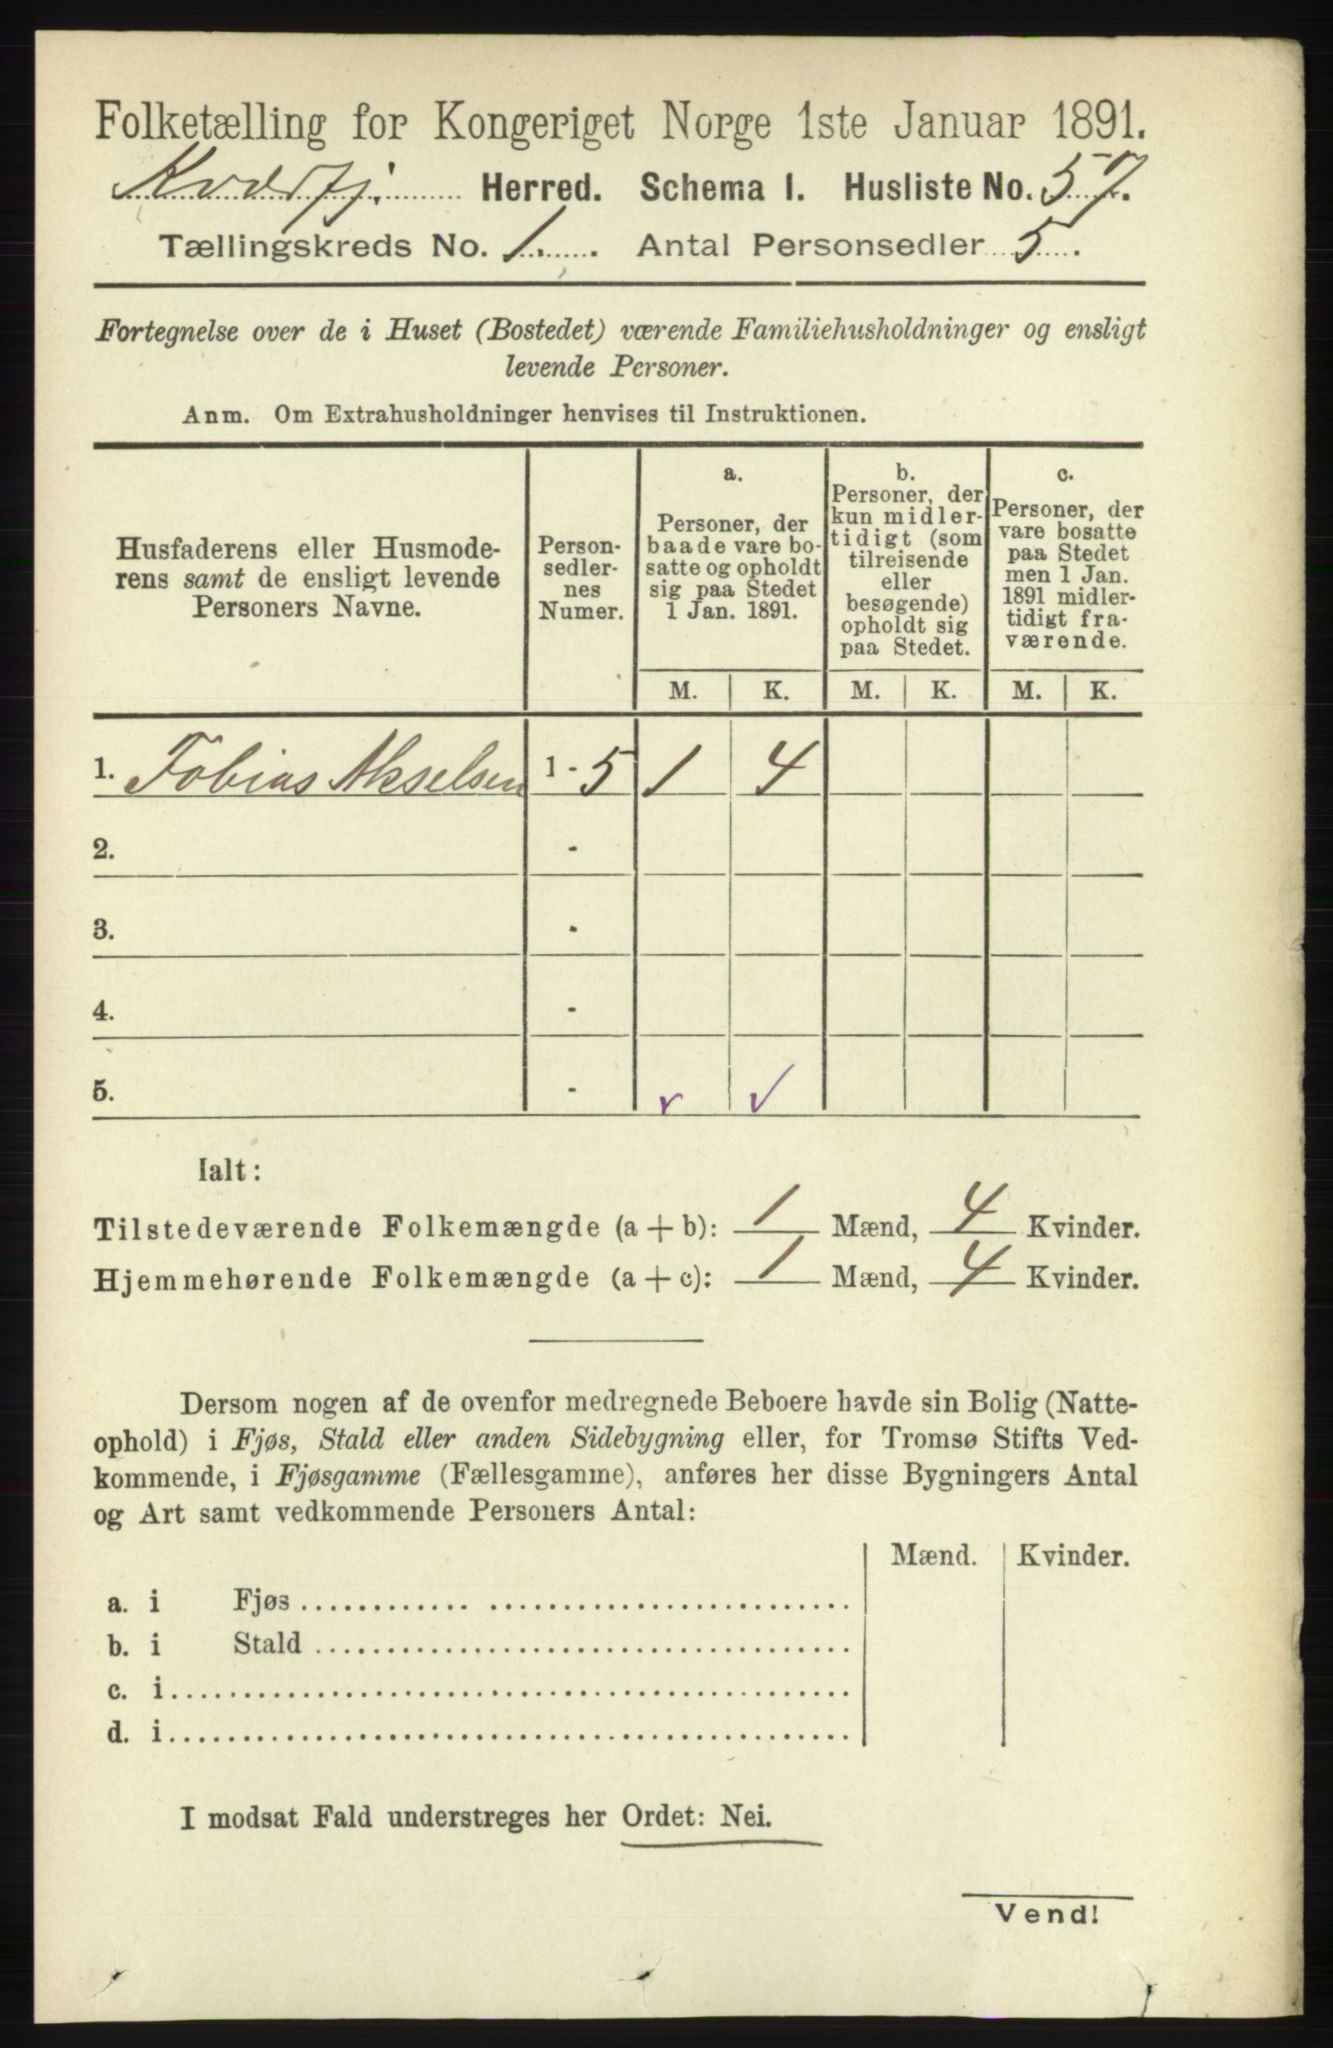 Folketælling for Kongeriget Norge 1ste Januar 1891.
Kvædfj. Herred. Schema I. Husliste No. 57.
Tællingskreds No. 1. Antal Personsedler 5.
Fortegnelse over de i Huset (Bostedet) værende Familiehusholdninger og ensligt
levende Personer.
Anm. Om Extrahusholdninger henvises til Instruktionen.
Husfaderens eller Husmode-
rens samt de ensligt levende
Personers Navne.
Person-
sedler-
nes
Numer.
a.
Personer, der
baade vare bo-
satte og opholdt
sig paa Stedet
1 Jan. 1891.
b.
Personer, der
kun midler-
tidigt (som
tilreisende
eller
besøgende)
opholdt sig
paa Stedet.
c.
Personer, der
vare bosatte
paa Stedet
men 1 Jan.
1891 midler-
tidigt fra-
værende.
M. K. M. K. M. K.
1. Tobias Akselsen 1 - 5 1 4
2. -
3. -
4. -
5. -
Ialt:
Tilstedeværende Folkemængde (a + b): 1 Mænd, 4 Kvinder.
Hjemmehørende Folkemængde (a + c): 1 Mænd, 4 Kvinder.
Dersom nogen af de ovenfor medregnede Beboere havde sin Bolig (Natte-
ophold) i Fjøs, Stald eller anden Sidebygning eller, for Tromsø Stifts Ved-
kommende, i Fjøsgamme (Fællesgamme), anføres her disse Bygningers Antal
og Art samt vedkommende Personers Antal:
Mænd. Kvinder.
a. i Fjøs
b. i Stald
c. i
d. i
I modsat Fald understreges her Ordet: Nei.
Vend!